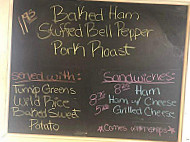 11.95 Baked Ham
Stuffed Bell Pepper
Pork Roast
Served with:
Turnip Greens
Wild Rice
Baked Sweet
Potato
Sandwiches:
8.75 Ham
8.75 Ham w/ Cheese
5.25 Grilled Cheese
*Comes with chips*